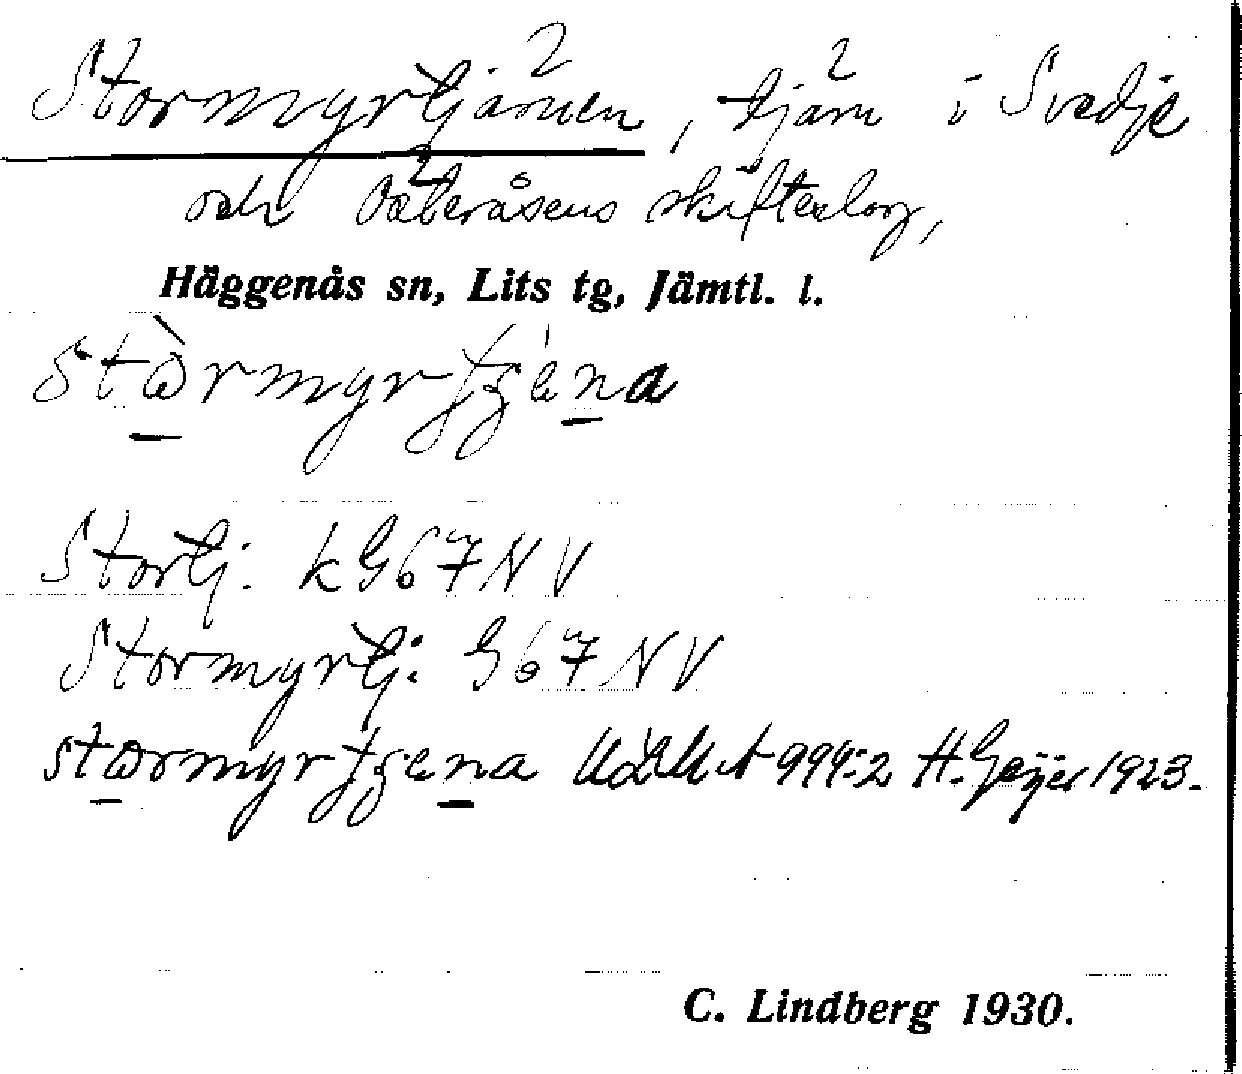 Stormyrtjärnen, tjärn i Svedje
och Österåsens skifteslag,
Häggenås sn, Lits tg, Jämtl. l.
stòrmyrtjæ̀na
Stortj. k G67NV
Stormyrtj. G67NV
stormyrtjena ULMA 999:2 H. Geijer 1923.
C. Lindberg 1930.